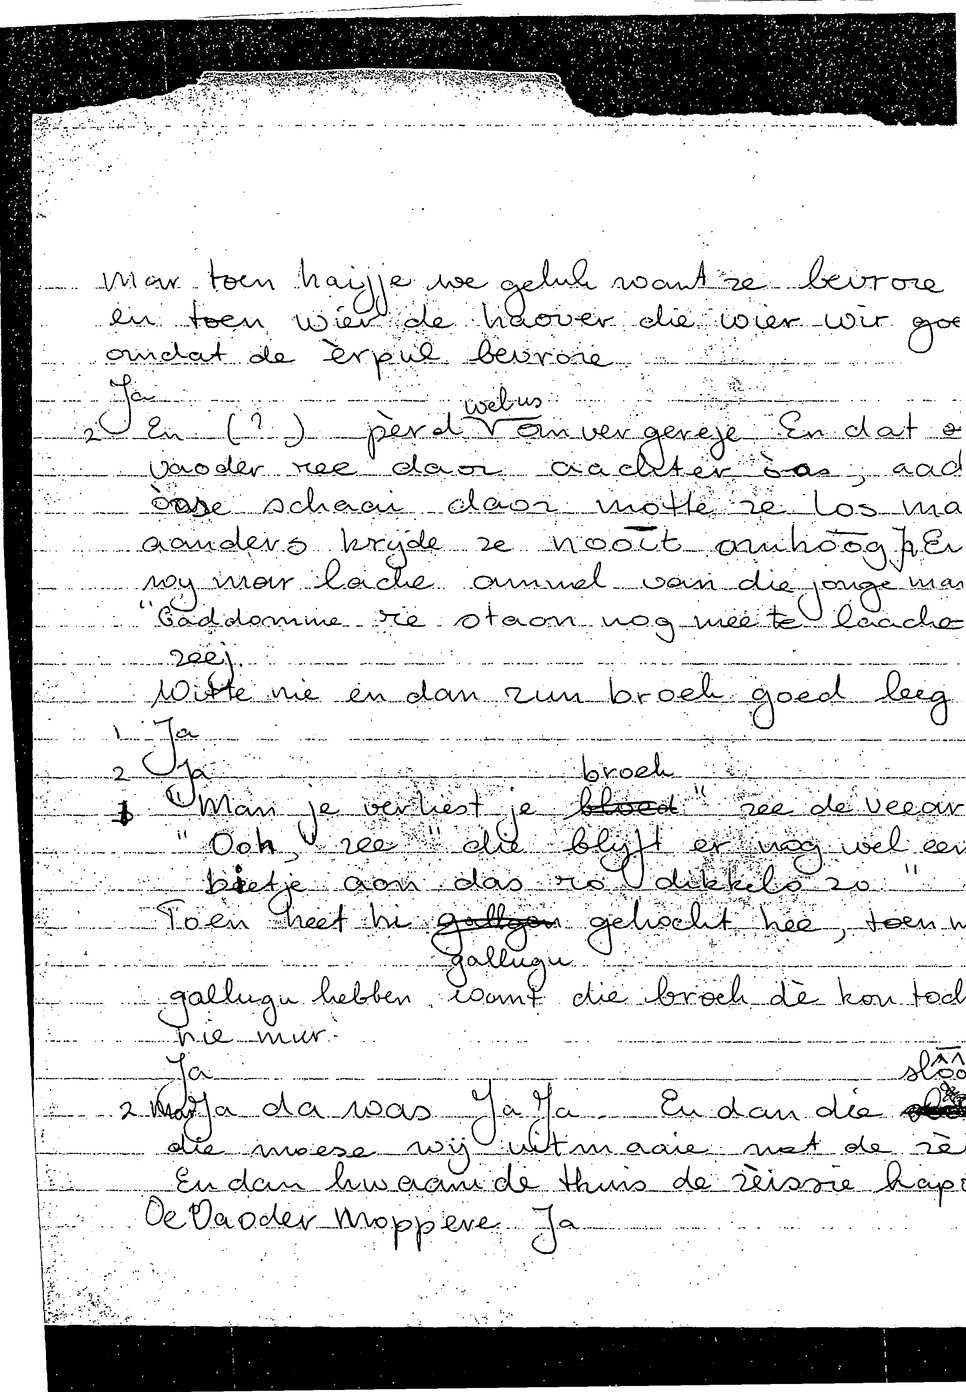 Mar toen haijje we geluk want ze bevrore
en toen wier de haover die wier wir goe
omdat de èrpul bevrore
Ja
welus
2 En (?) pèrd van vergereje En dat
vaoder ree daor aachter òns, aad
òase schaai daor motte ze los ma
aanders krijde ze nōōit omhōōg En
wij mar lache ammel van die jonge man
"Gaddomme ze staon nog mee te laache
zeej.
Witte nie en dan zun broek goed leeg
1 Ja
2 Ja
broek
1 "Man je verliest je bloed" zee de veear
"Ooh," zee "die blijft er nog wel een
bietje aon das zo dikkels zo"
Toen heet hi gallgon gekocht hee, toen
gallugu
gallugu hebben want die broek dè kon toch
nie mur.
Ja
slôô
2 Mar Ja da was Ja Ja. En dan die
die moese wij uitmaaie met de zèi
En dan kwaamde thuis de zèissie kapo
De Vaoder Moppere Ja